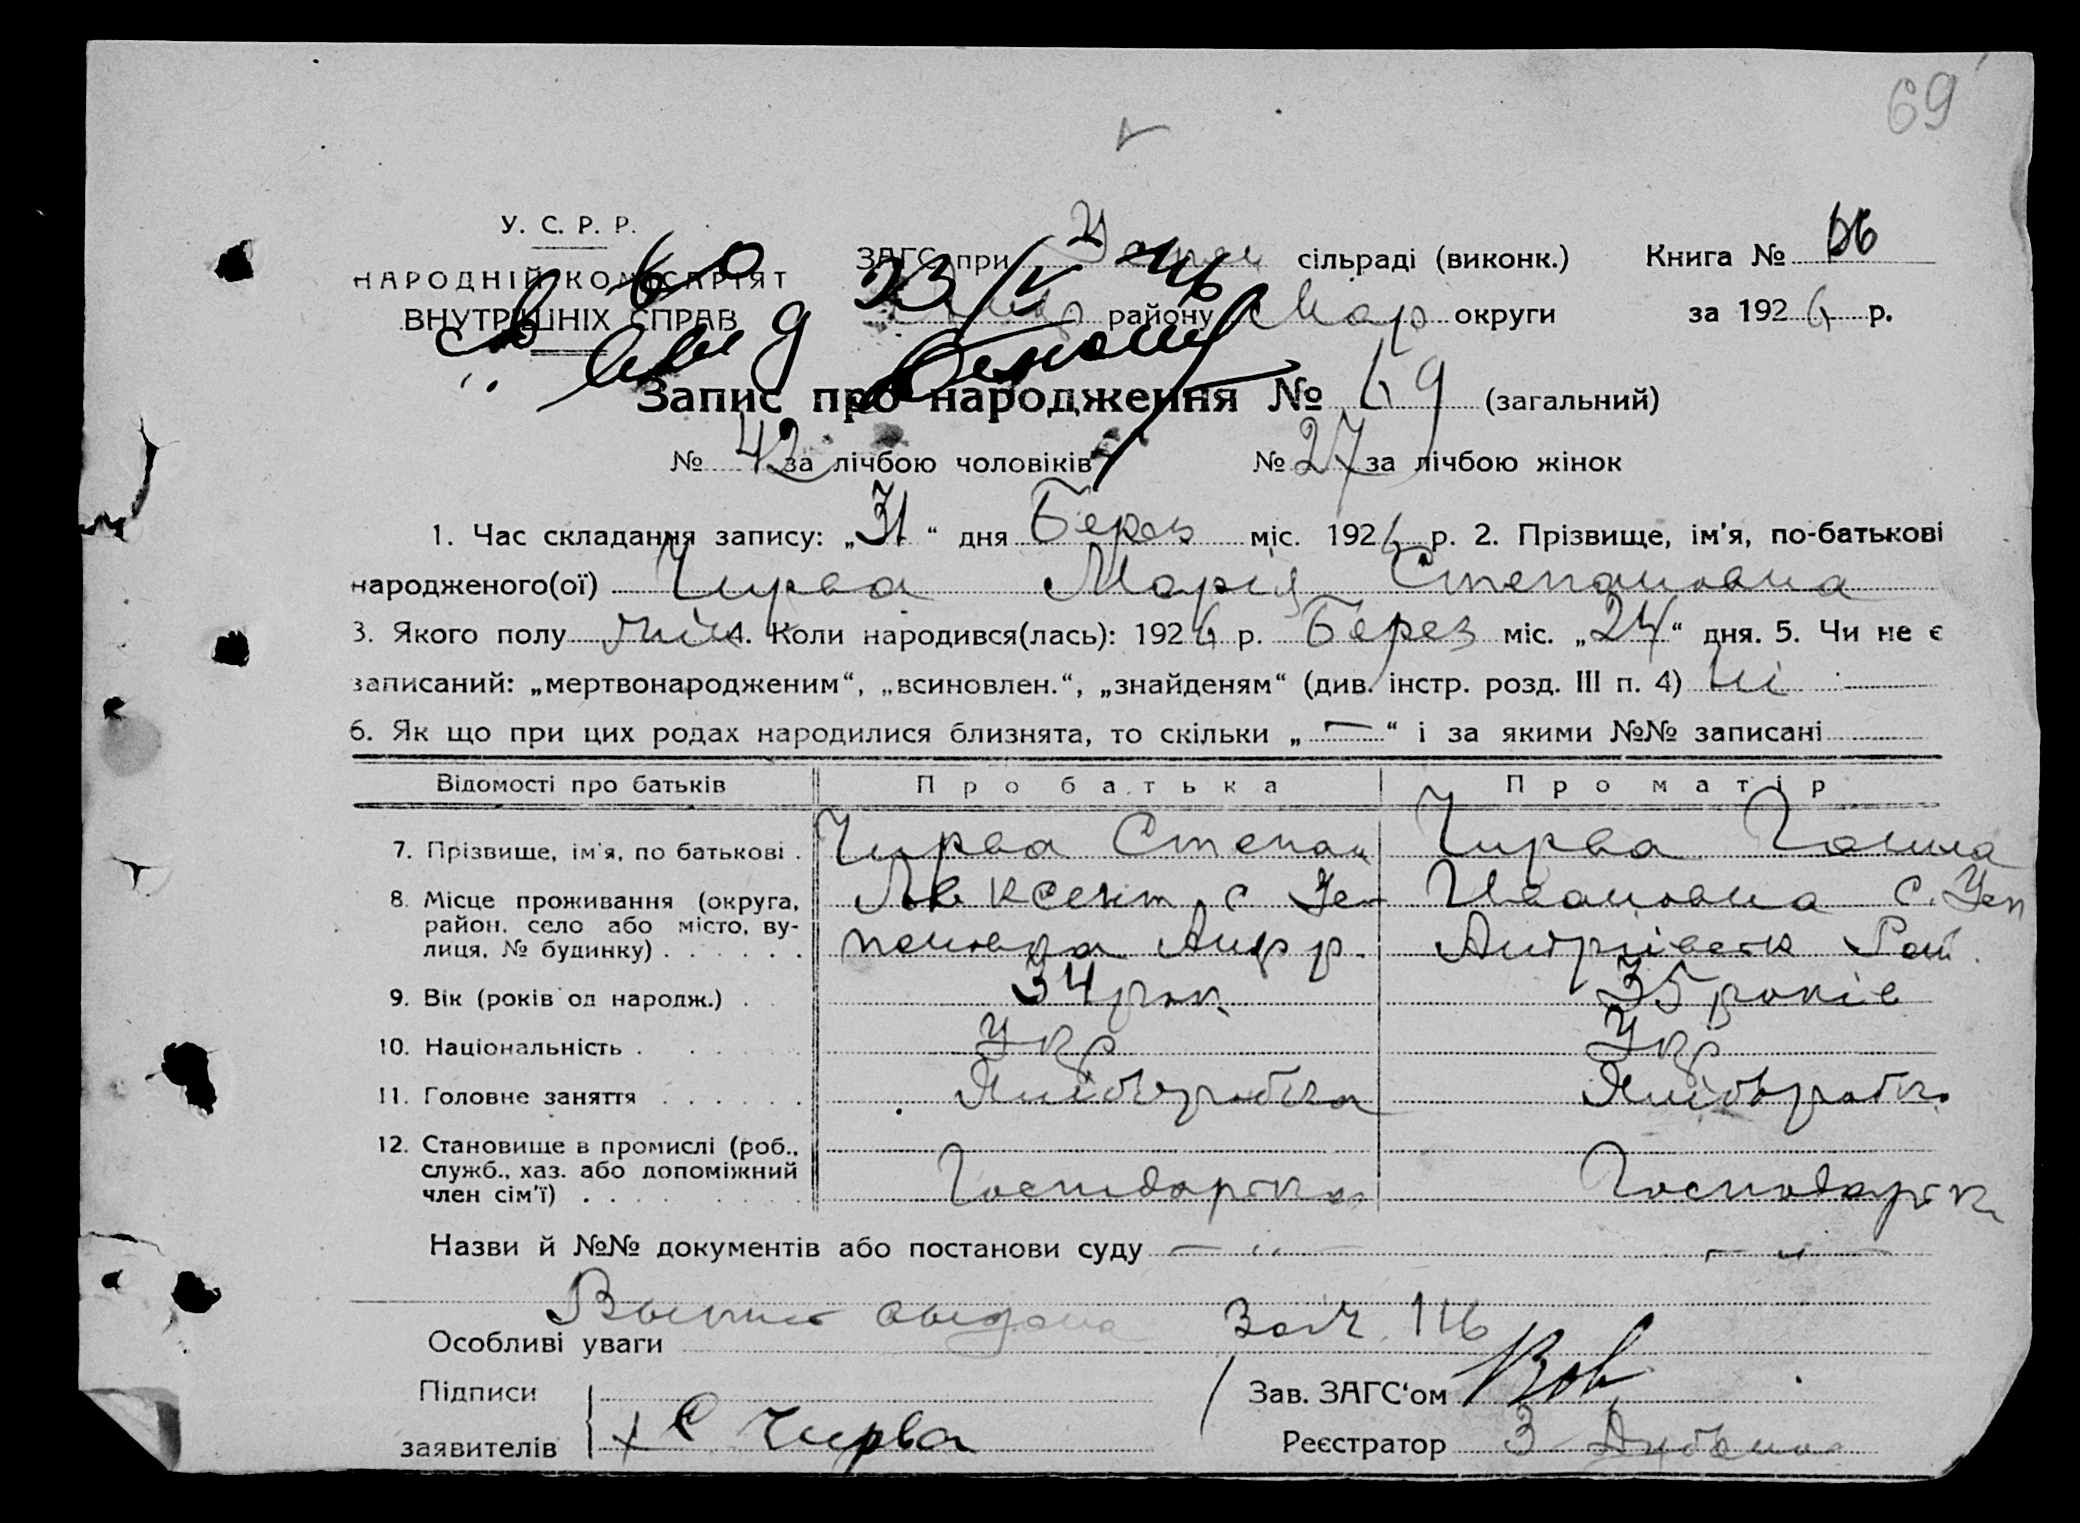 69
У. С. Р. Р.
НАРОДНІЙ КОМІСАРІЯТ
ВНУТРІШНІХ СПРАВ
ЗАГС при сільраді (виконк.) Книга №
району Мар округи за 1926 р.
23/V 46
Запис про народження № 69 (загальний)
№ 42 за лічбою чоловіків № 27 за лічбою жінок
1. Час складання запису: „31“ дня Берез міс. 1926 р. 2. Прізвище, ім'я, по-батькові
народженого(ої) Чирва Марія Степановна
3. Якого полу жін 4. Коли народився(лась): 1926 р. Берез міс. „24“ дня. 5. Чи не є
записаний: „мертвонародженим“, „всиновлен.“, „знайденям“ (див. інстр. розд. III п. 4) ні
6. Як що при цих родах народилися близнята, то скільки „—“ і за якими №№ записані
Відомості про батьків Про батька Про матір
7. Прізвище, ім'я, по батькові . Чирва Степан Чирва Ганна
8. Місце проживання (округа, район, село або місто, вулиця, № будинку) Авксент с Ивановна с. Усп
Андр р. Андріевськ Рай.
9. Вік (років од народж.) . 34 рок 35 років
10. Національність . Укр Укр
11. Головне заняття Хліборобка Хлібороб
12. Становище в промислі (роб., служб., хаз. або допоміжний член сім'ї) Господарка Господарк
Назви й №№ документів або постанови суду — „ — — „ —
выдана
Особливі уваги
Підписи Зав. ЗАГС'ом
заявителів + С Чирва Реєстратор